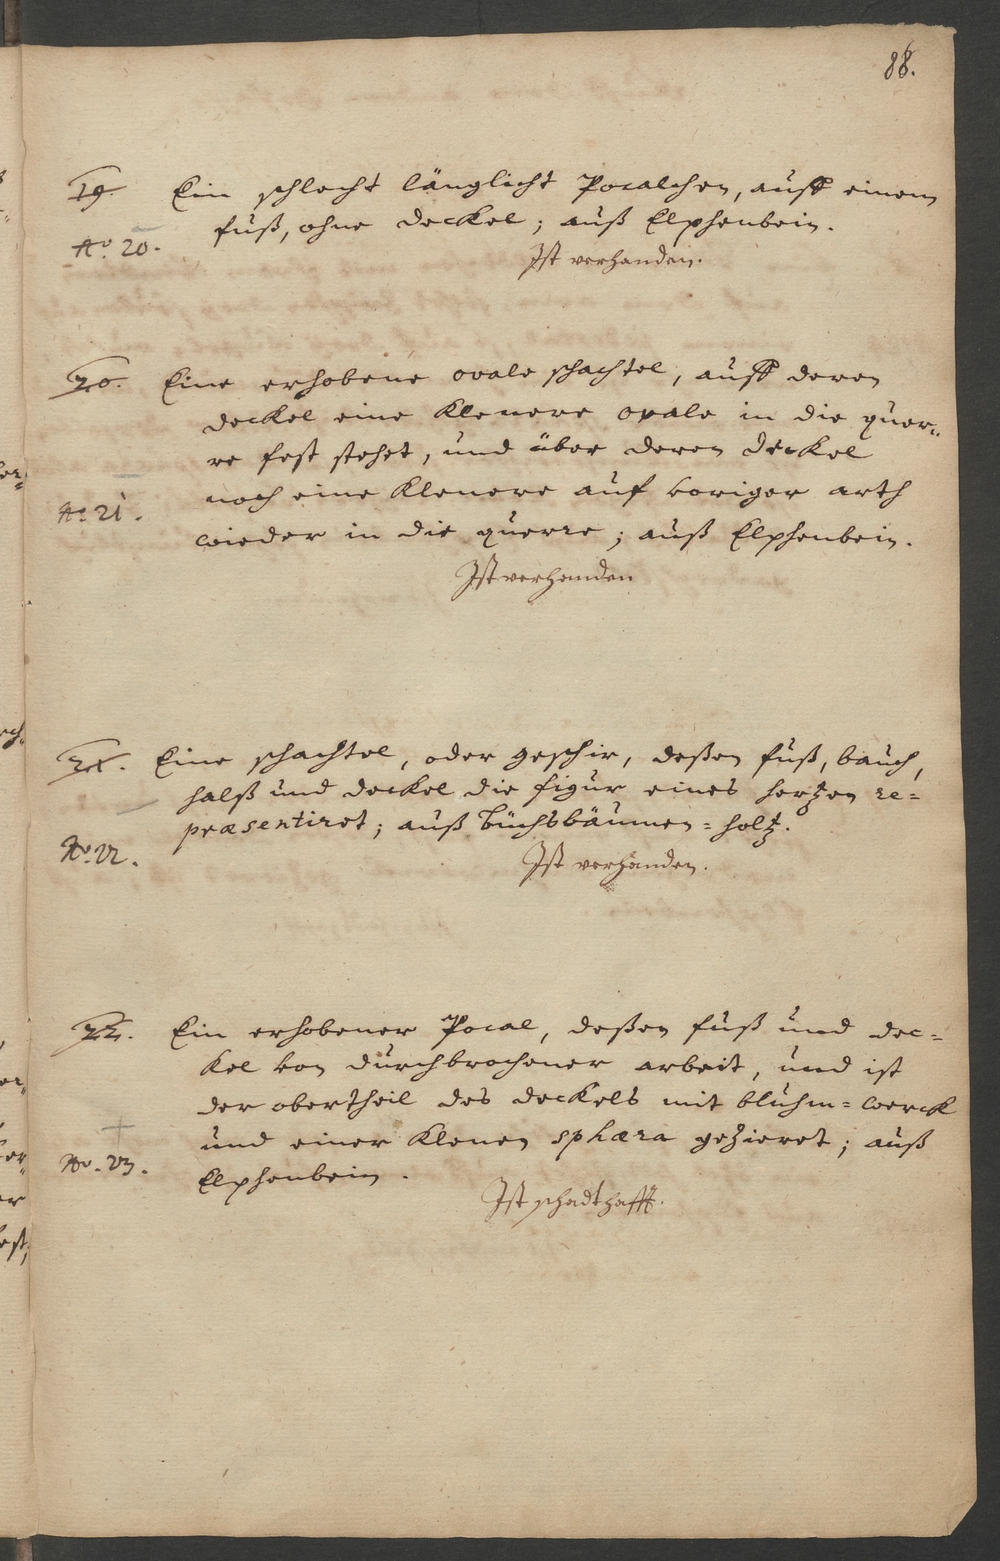 88.
19. Ein schlecht länglicht Pocalchen, auff einem
fuß, ohne deckel; auß Elphenbein.
No. 20.
Ist verhanden.
20. Eine erhobene ovale schachtel, auff deren
deckel eine klenere ovale in die quer=
re fest stehet, und über deren deckel
noch eine klenere auf voriger arth
No 21.
wieder in die querre; auß Elphenbein.
Ist verhanden
21. Eine schachtel, oder geschir, deßen fuß, bauch,
halß und deckel die figur eines hertzen re=
præsentiret; auß büchsbäumen=holtz.
No. 22.
Ist verhanden.
22. Ein erhobener Pocal, deßen fuß und dec=
kel von durchbrochener arbeit, und ist
der obertheil des deckels mit bluhm=werck
und einer klenen sphæra gezieret; auß
No. 23.
Elphenbein.
Ist schadthafft.